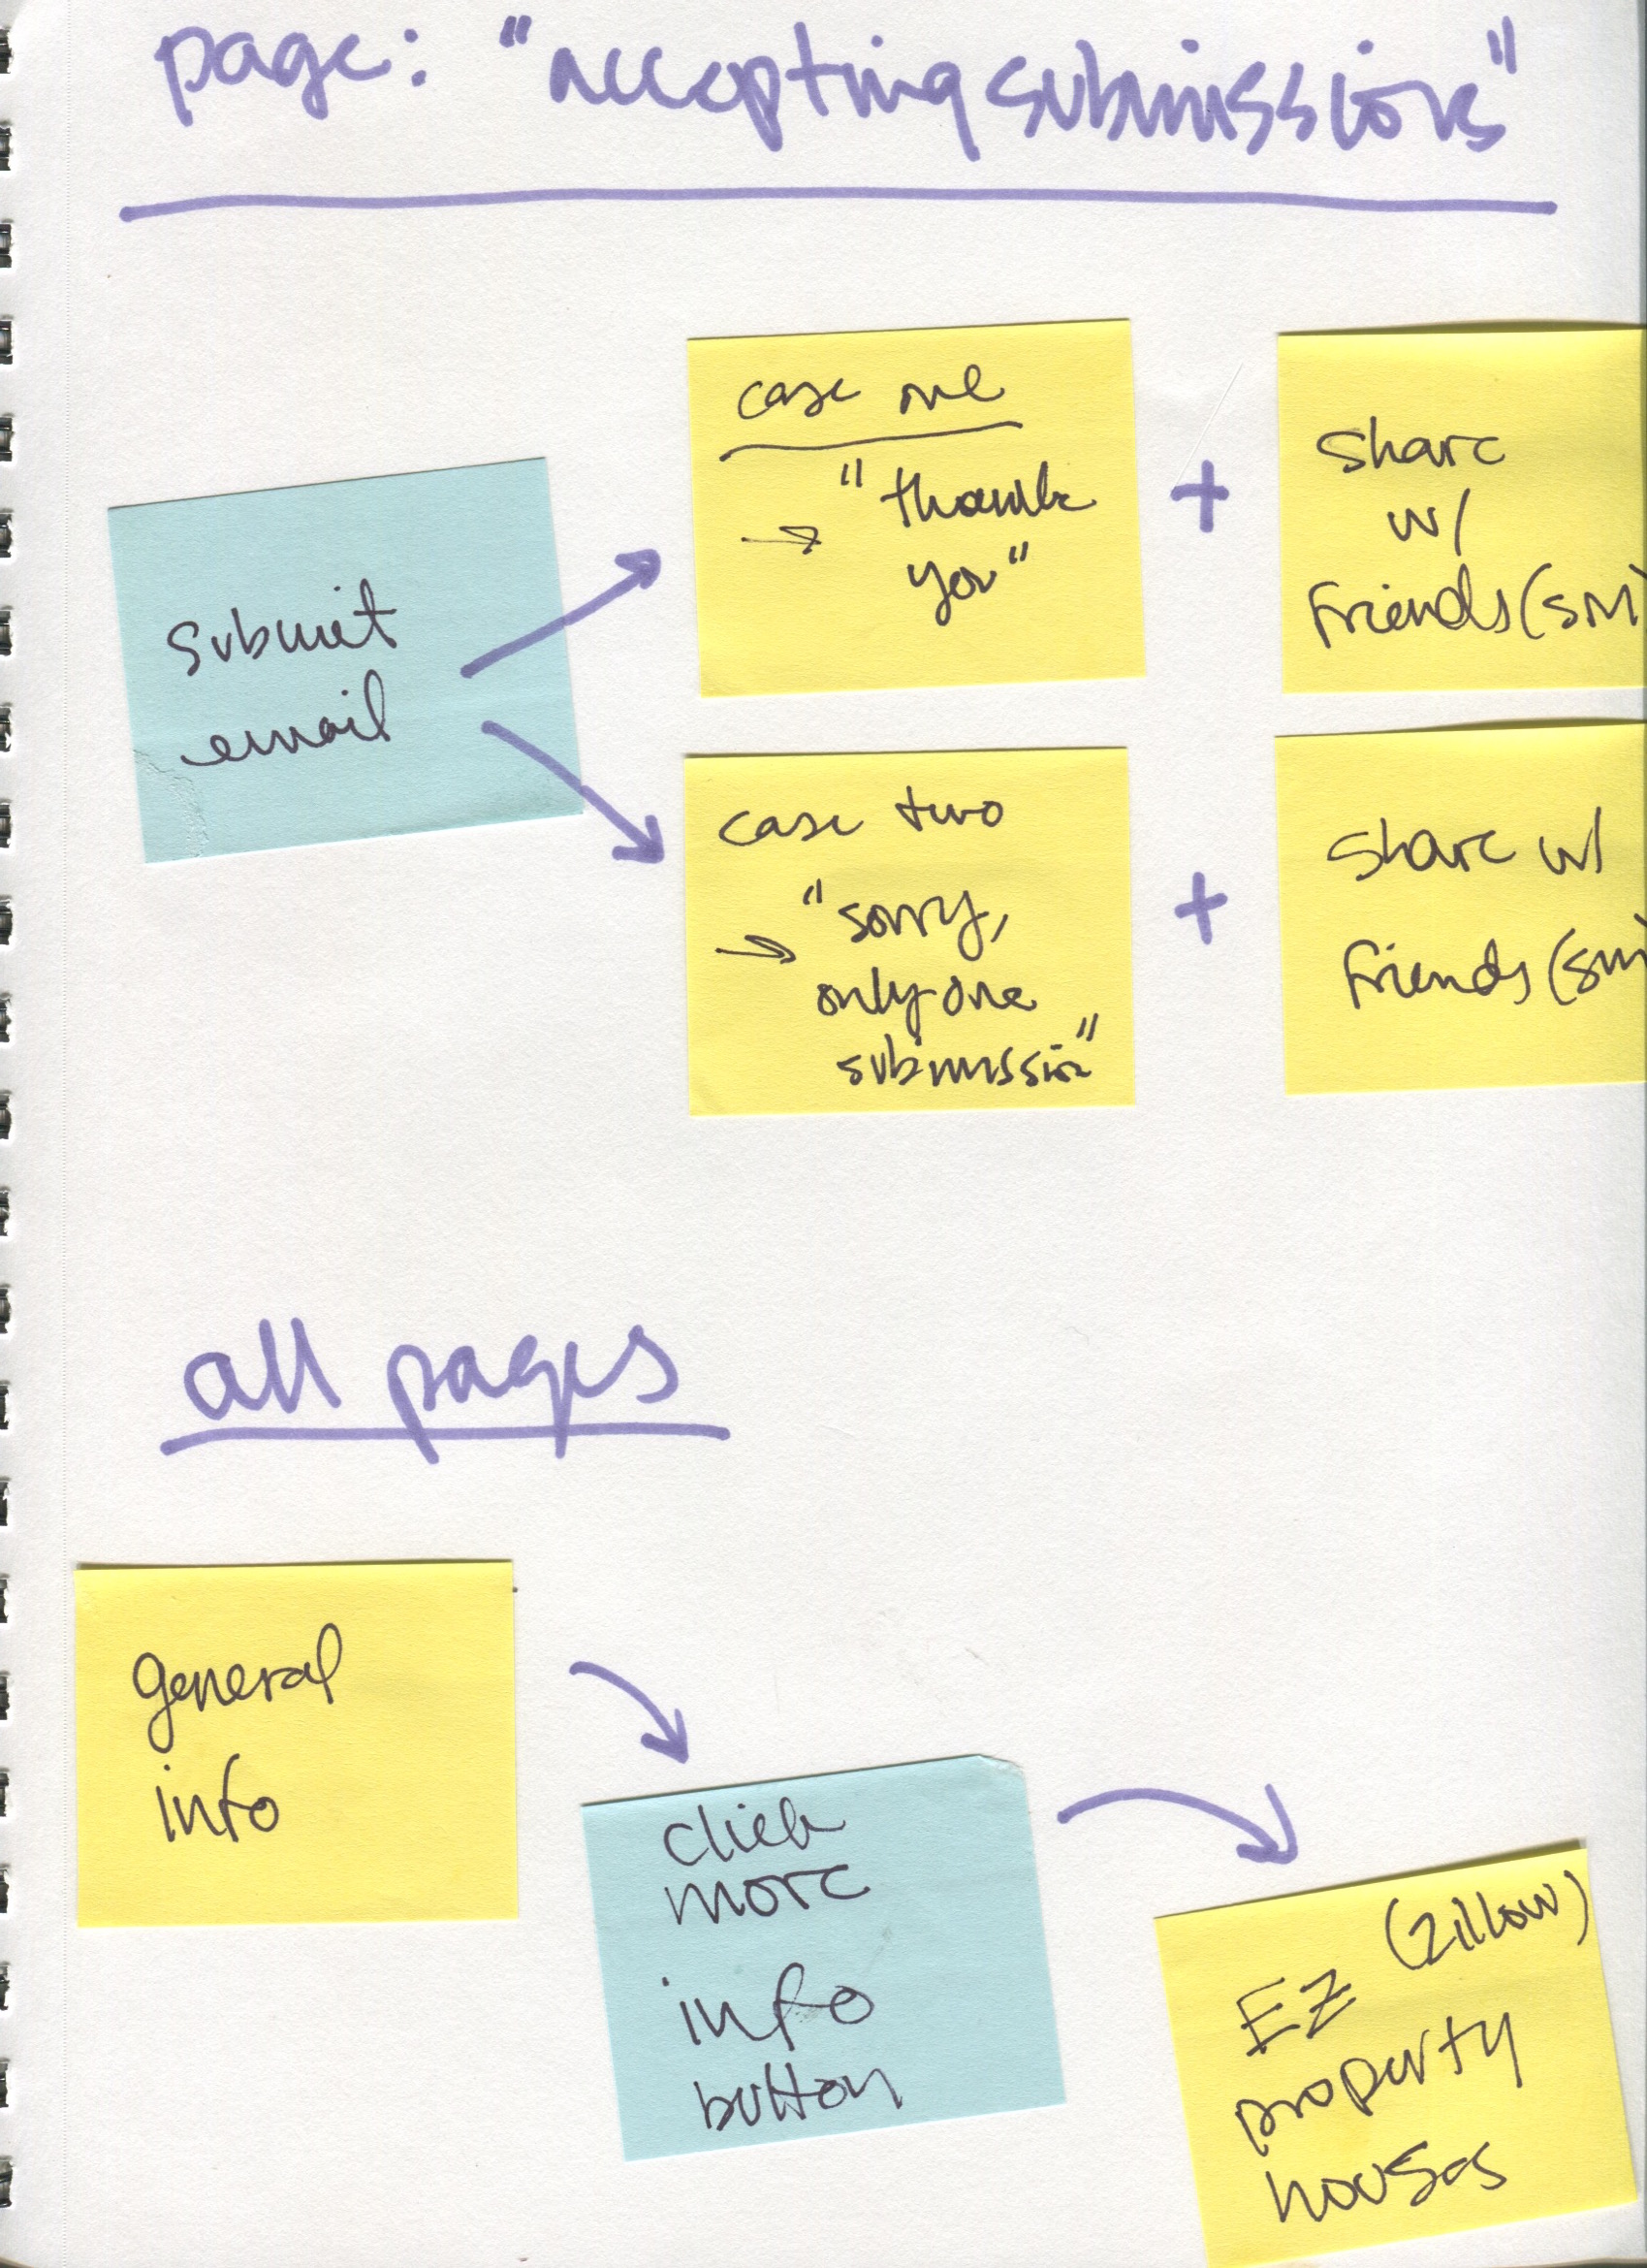 page: "accepting submissions"
submit
email
case one
→ "thank
you"
+
share
w/
friends (SM)
case two
→ "sorry,
only one
submission"
+
share w/
friends (SM)
all pages
general
info
click
more
info
button
(zillow)
EZ
property
houses